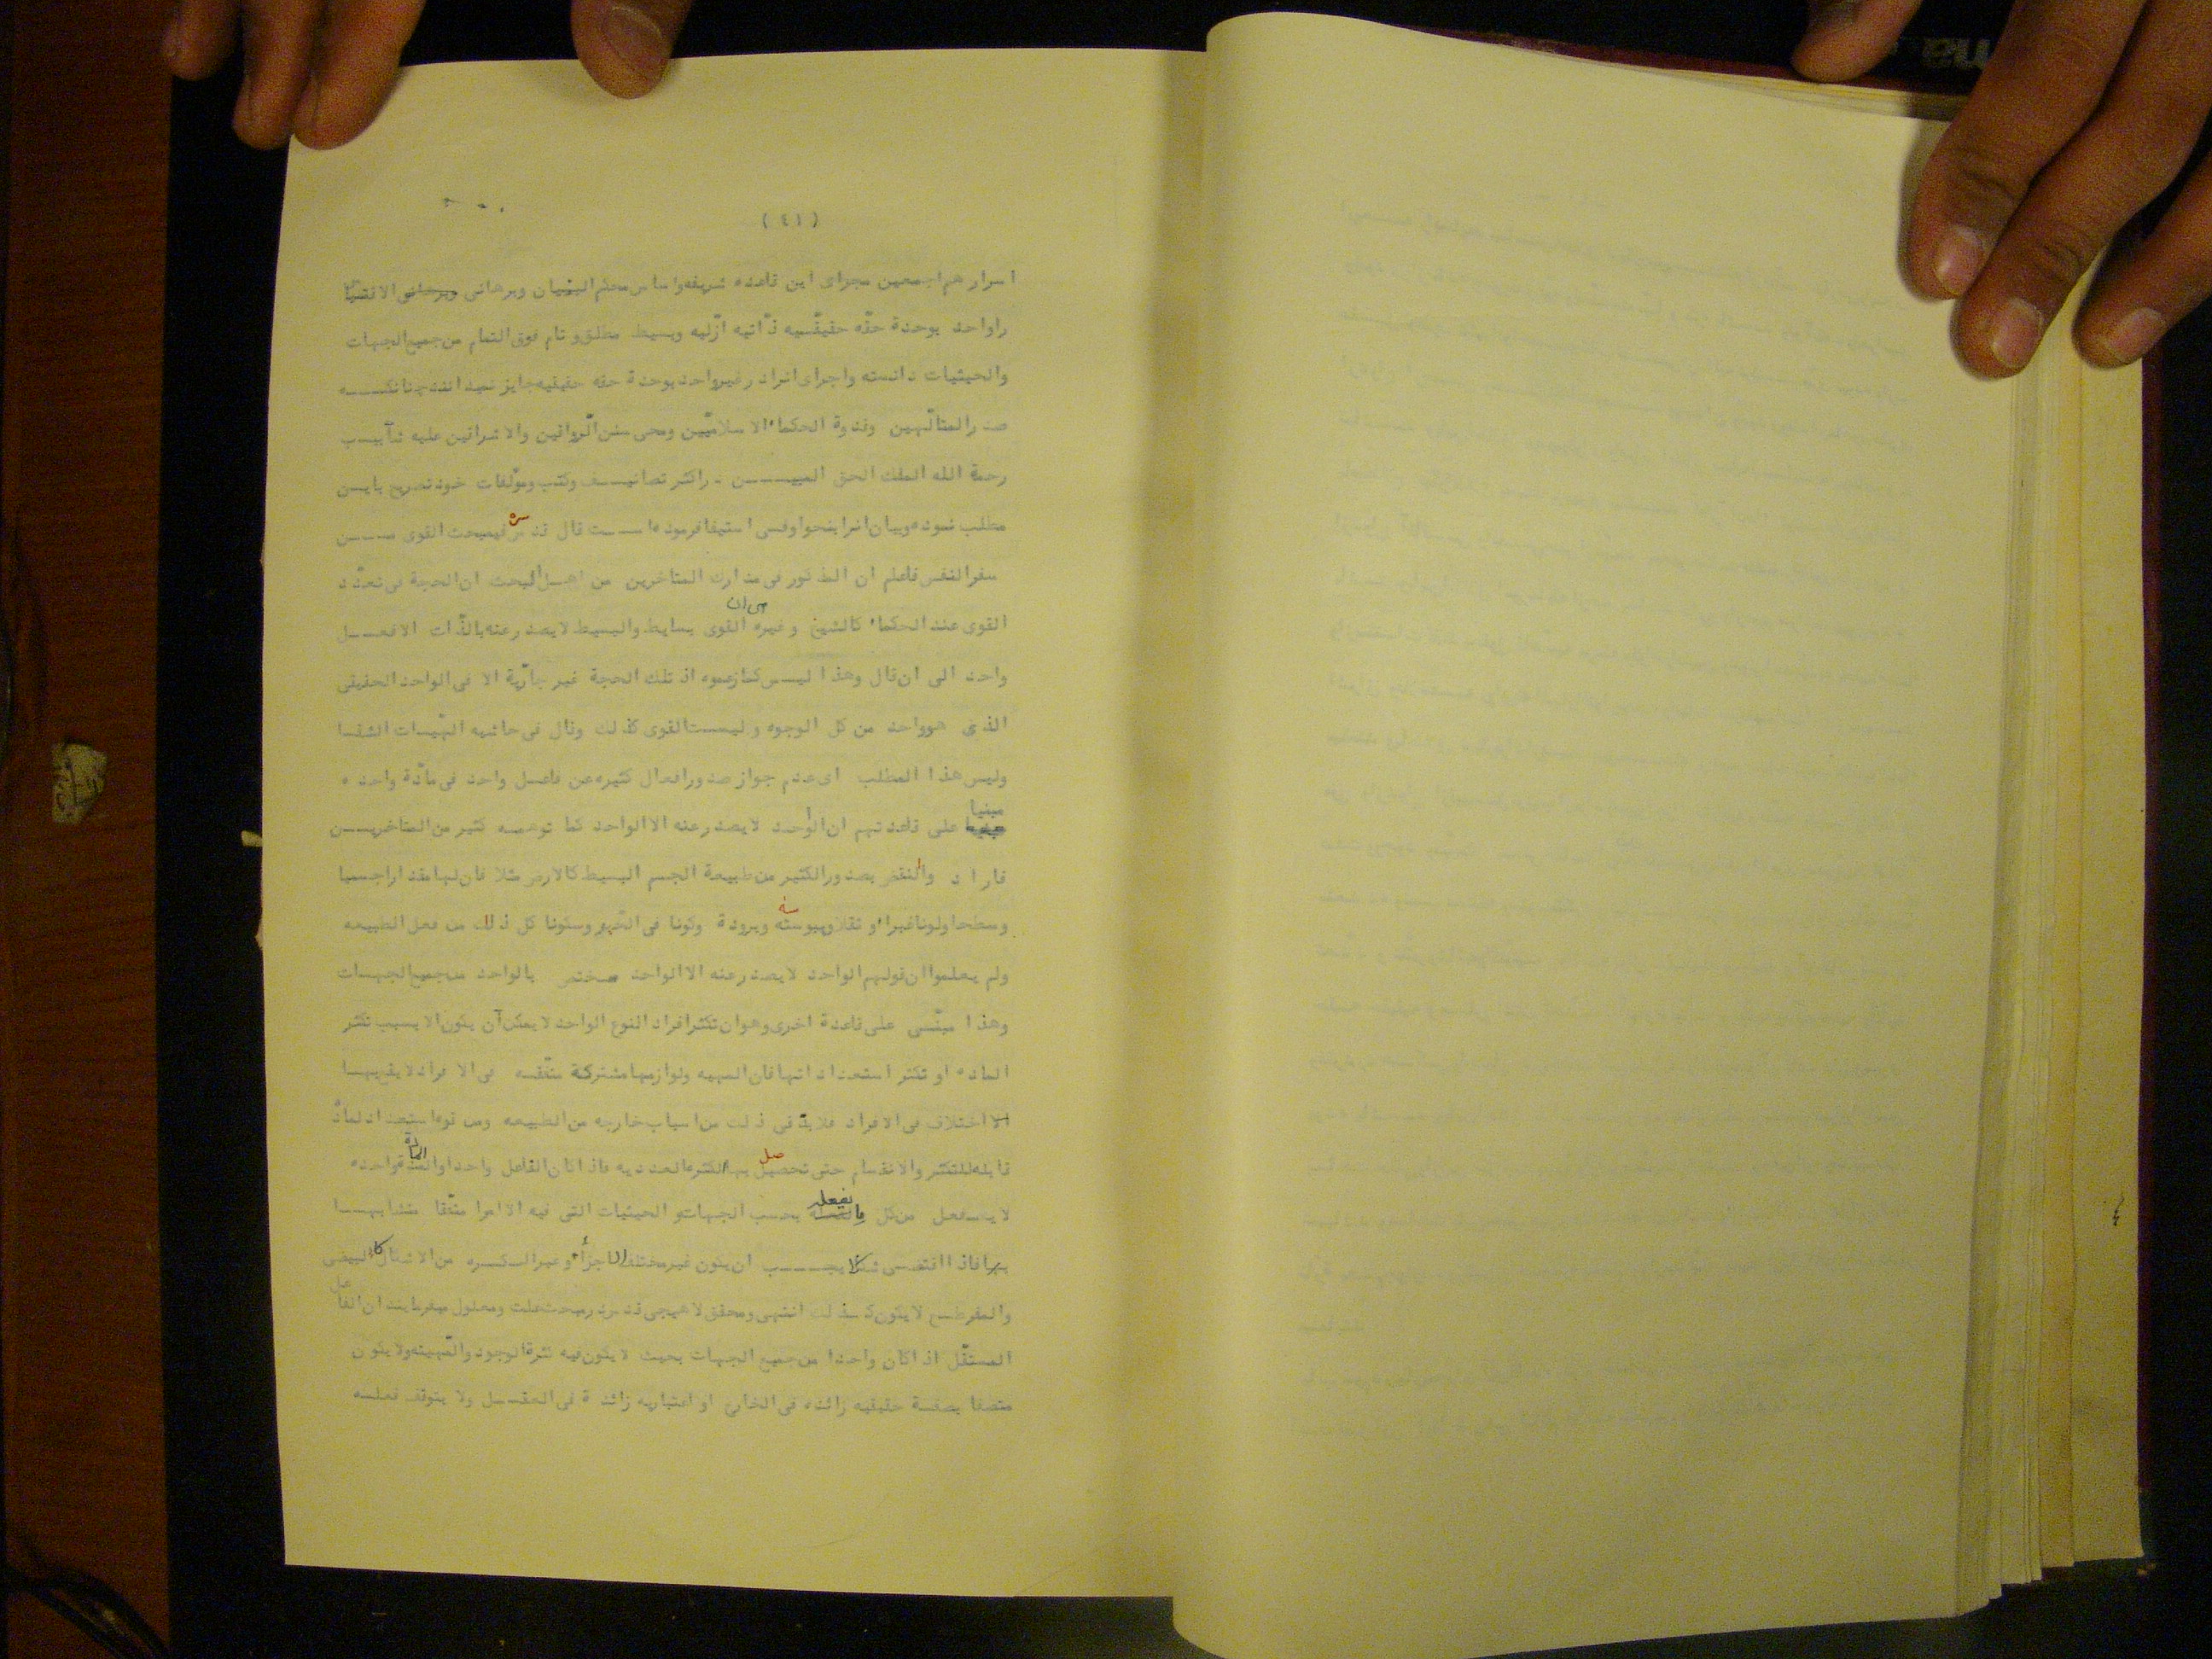 (٤١)
اسرار هم اجمعین مجرای این قاعده شریفه و اساس محکم البنیان وبرهانی الاتقیا
را واحد بوحدة حقّه حقیقّیه ذّاتیه ازّلیه وبسیط مطلق و تام فوق التمام من جمیع الجهات
والحیثیات دانسته واجرای انرا در غیر واحد بوحدة حقه حقیقیه جایز نمیدانند چنانکه
صدر المتالّهین وقدوة الحکماء الاسلامیّین ومحی سنن الّرواقین والاشراقین علیه شآبیب
رحمة الله الملک الحق المبین - در اکثر تصانیف وکتب ومولّفات خود تصریح باین
مطلب نموده وبیان انرا بنحو اوفی استیفا فرموده است قال قدس سره فی مبحث القوی من
سفر النفس فاعلم ان المذکور فی مدارک المتاخرین من اهل البحث ان الحجة فی تعدّد
القوی عند الحکماء کالشیخ و غیره هی ان القوی بسایط والبسیط لایصدر عنه بالذّات الا فعل
واحد الی ان قال وهذا لیس کما زعموه اذ تلک الحجة غیر جارّیة الا فی الواحد الحقیقی
الذی هو واحد من کل الوجوه ولیست القوی کذلک وقال فی حاشیه الهّیات الشفا
ولیس هذا المطلب ای عدم جواز صدور افعال کثیره عن فاعل واحد فی مادّة واحده
مبنیا علی قاعدتهم ان الواحد لایصدر عنه الا الواحد کما توهمه کثیر من المتاخرین
فاراد والنقض بصدور الکثیر من طبیعة الجسم البسیط کالارض مثلا فان لها مقدارا جسمیا
وسطحا ولونا غبراء و ثقلا ویبوسته وبرودة وکونا فی الحّیز وسکونا کل ذلک من فعل الطبیعه
ولم یعلموا ان قولهم الواحد لایصدر عنه الا الواحد مختص بالواحد من جمیع الجهات
وهذا مبنّی علی قاعدة اخری وهو ان تکثر افراد النوع الواحد لایمکن آن یکون الا بسبب تکثر
الماده او تکثر استعداداتها فان المهیه ولوازمها مشترکة متّفقه فی الافراد لایقع بها
الاختلاف فی الافراد فلابدّ فی ذلک من اسباب خارجه من الطبیعه ومن قوه استعداد لمادّ
قابله للتکثر والانقسام حتی تحصل بها الکثره العددیه فاذا کان الفاعل واحدا والمادّة واحده
لایفعل من کل مایفعله بحسب الجهات و الحیثیات التی فیه الا امرا متّفقا متشابها
بها فاذا اقتضی شکلا یجب ان یکون غیر مختلف الاجزأء وغیر الکره من الاشکال کالبیضی
والمفرطح لایکون کذلک انتهی ومحقق لاهیجی قدس در مبحث علت ومعلول میفرمایند ان الفاعل
المستقّل اذا کان واحدا من جمیع الجهات بحیث لایکون فیه کثرة الوجود والمّهیته ولایکون
متصفا بصفة حقیقیه زائده فی الخارج او اعتباریه زائدة فی العقل ولا یتوقف فعله